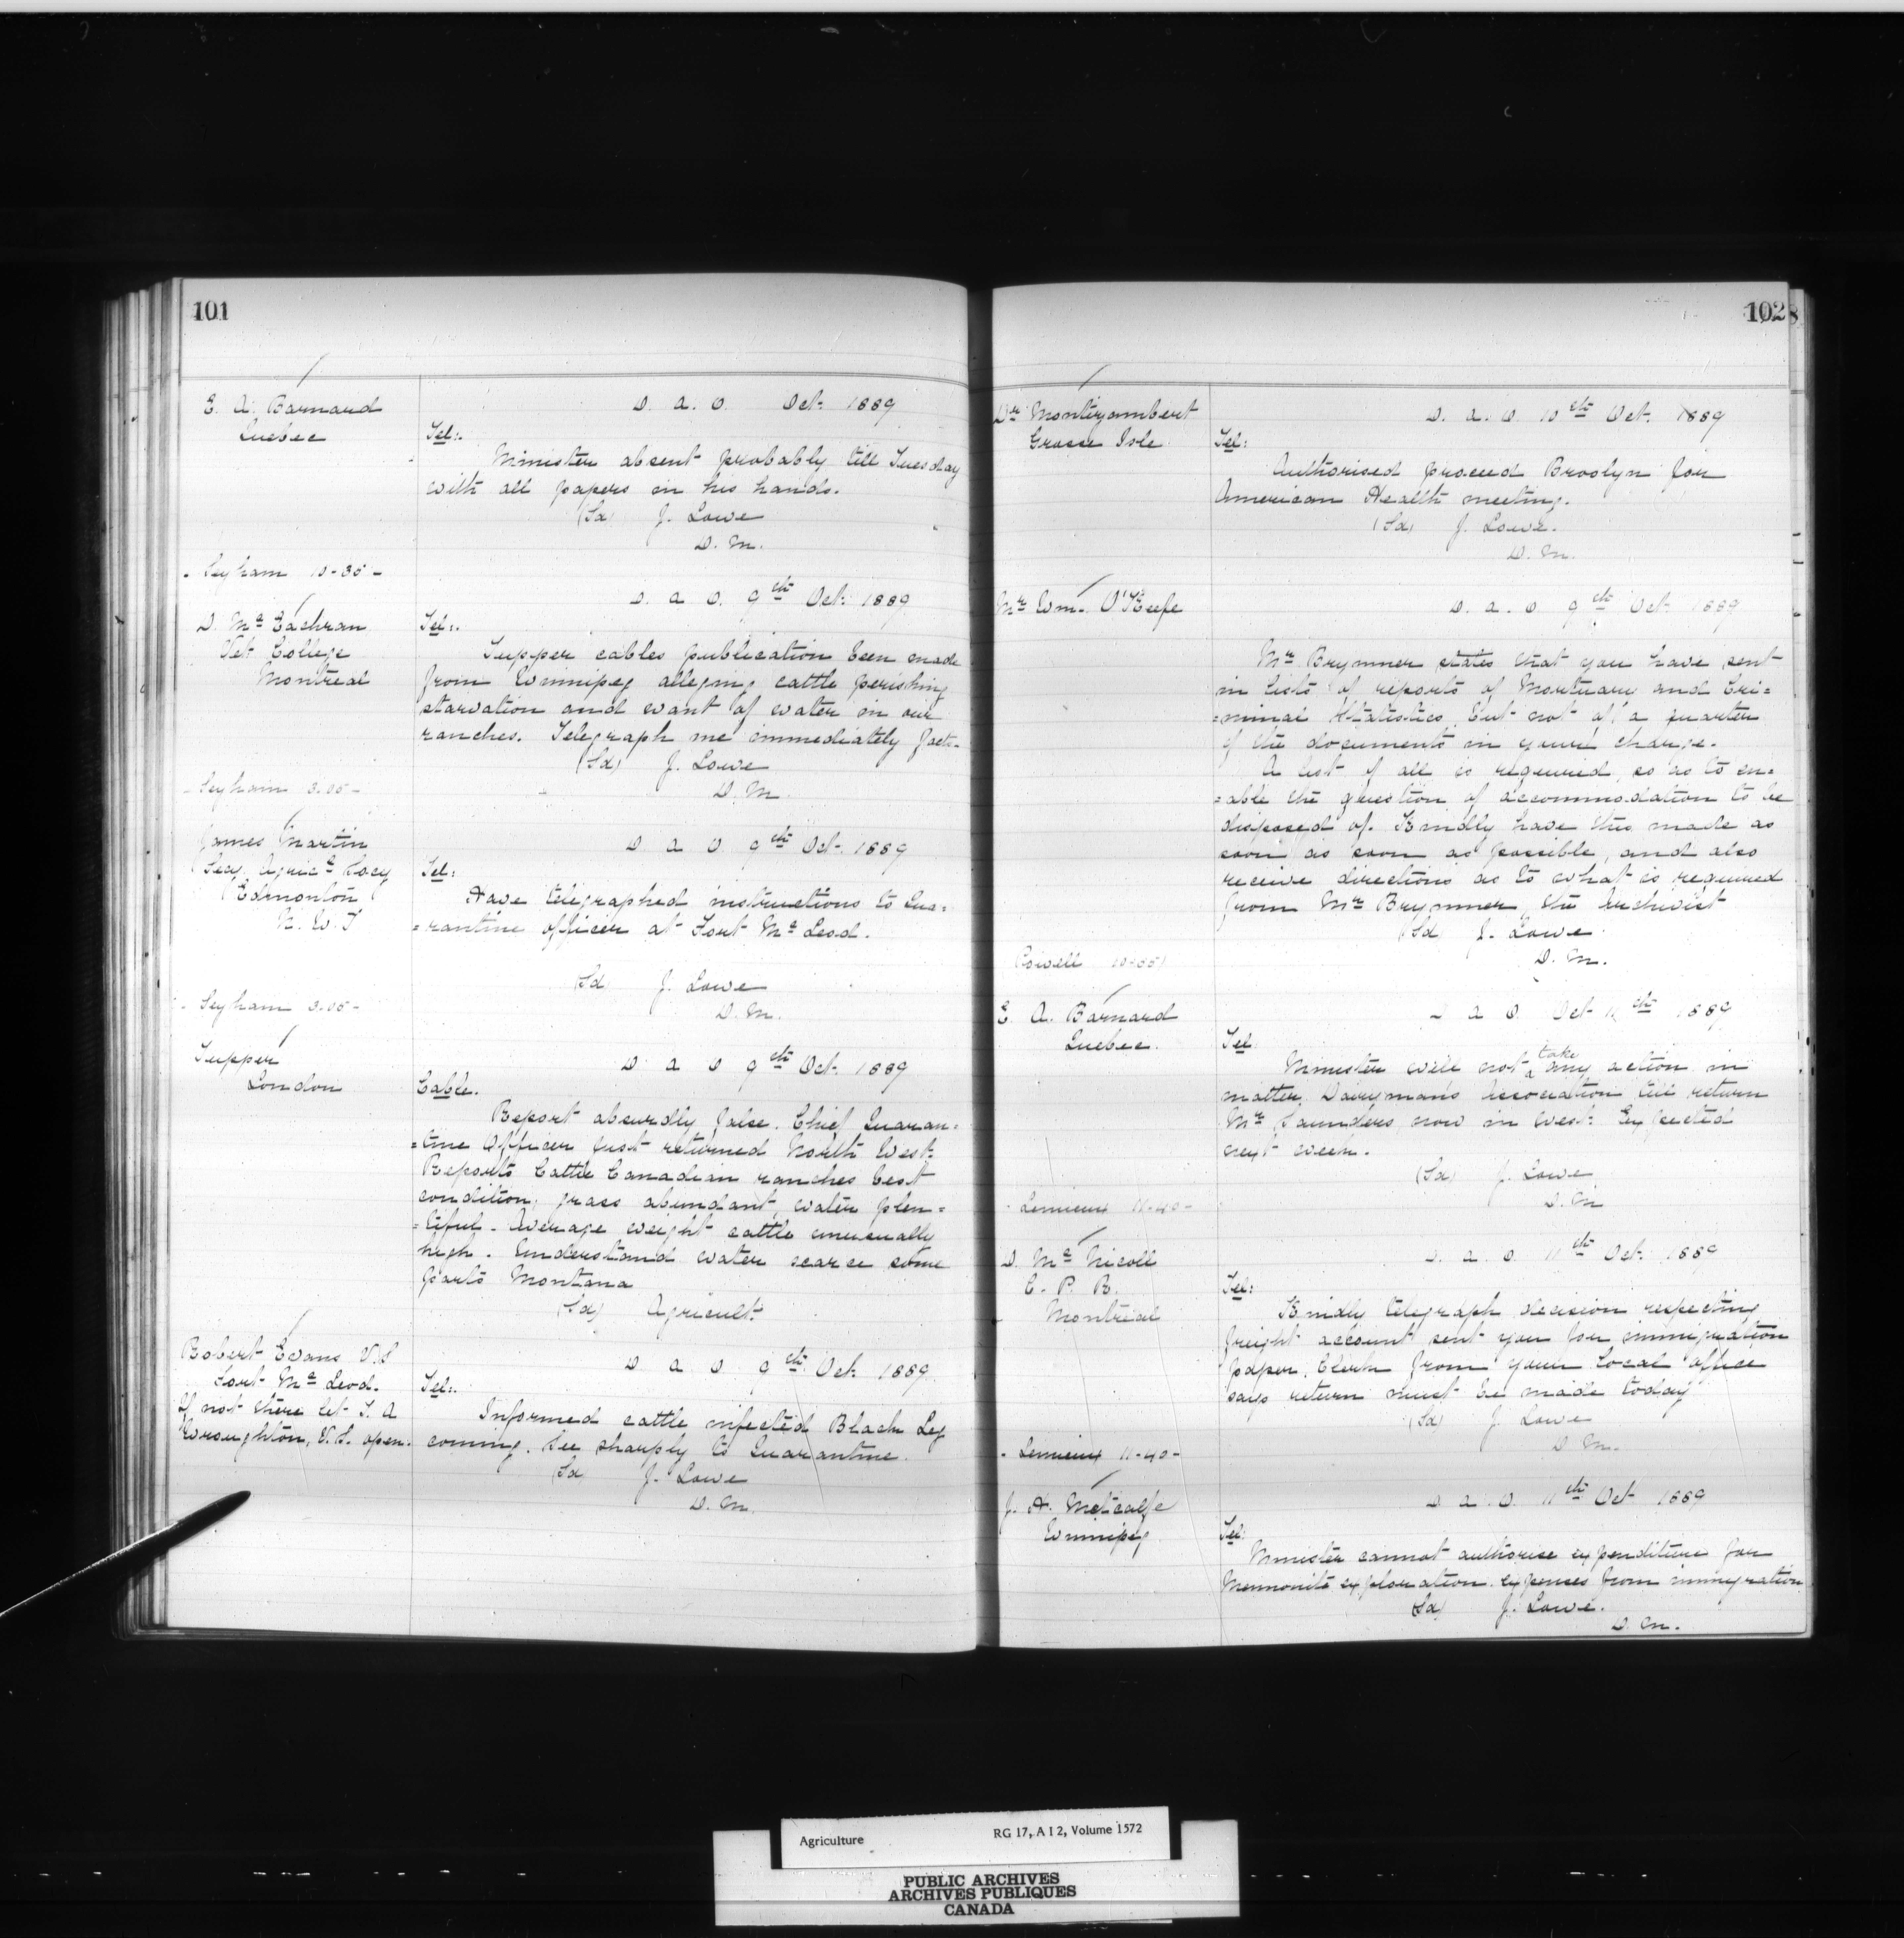 101
E. A. Barnard
Quebec
D. A. O. Oct. 1889
Tel:.
Minister absent probably till Tuesday
with all papers in his hands.
(Sd) J. Lowe
D. M.
D. Mc Eachran
Vet College
Montreal
D. A. O. 9th Oct. 1889
Tel:.
Tupper cables publication been made
from Winnipeg alleging cattle perishing
starvation and want of water in our
ranches. Telegraph me immediately facts.
(Sd) J. Lowe
D. M.
James Martin
Secy. Agric'l Socy
Edmonton
N. W. T
D. A. O. 9th Oct. 1889
Tel:
Have telegraphed instructions to Qua=
=rantine officer at Fort Mc Leod.
(Sd J. Lowe
D. M.
Tupper
London
D. A. O 9th Oct. 1889
Cable.
Report absurdly false. Chief Quaran=
=tine Officer just returned North West.
Reports Cattle Canadian ranches best
condition, grass abundant, water plen=
=tiful - Average weight cattle unusually
high. Understand water scarce some
parts Montana
(Sd) Agricult.
Robert Evans V.S
Fort Mc Leod.
If not there let T. A
Wroughton, V.S. open.
D. A. O. 9th Oct. 1889.
Tel:.
Informed cattle infected Black Leg
coming. See sharply to Quarantine.
(Sd J. Lowe
D. M.
102
Dr Montizambert
Grosse Isle
D. A. O 10th Oct. 1889
Tel:
Authorised proceed Broolyn for
American Health meeting.
(Sd) J. Lowe.
D. M.
Mr Wm. O'Keefe
D. A. O 9th Oct. 1889
Mr Brymner states that you have sent
in lists of reports of Mortuary and Cri=
=minal Statistics but not of a quarter
of the documents in your charge.
A list of all is required, so as to en=
=able the question of accommodation to be
disposed of. Kindly have this made as
soon as soon as possible, and also
receive directions as to what is required
from Mr Brymner, the Archivist
(Sd J. Lowe
D. M.
Powell 10-55
E. A. Barnard
Quebec.
D A O. Oct 11th 1889
Tel.
Minister will not take any action in
matter Dairyman's Association till return
Mr Saunders now in West. Expected
next week.
(Sd) J. Lowe
D. M
Lemieux 11-40-
D. Mc Nicoll
C. P. R.
Montreal
D. A. O. 11th Oct. 1889
Tel:
Kindly telegraph decision respecting
freight account sent you for immigration
paper. Clerk from your local office
says return must be made today
(Sd) J. Lowe
D. M.
- Lemieux 11-40-
J. H. Metcalfe
Winnipeg
D A. O. 11th Oct 1889
Tel:
Minister cannot authorise expenditure for
Mennonite exploration expenses from immigration
(Sd) J. Lowe.
D. M.
Agriculture
RG 17, A I 2, Volume 1572
PUBLIC ARCHIVES
ARCHIVES PUBLIQUES
CANADA